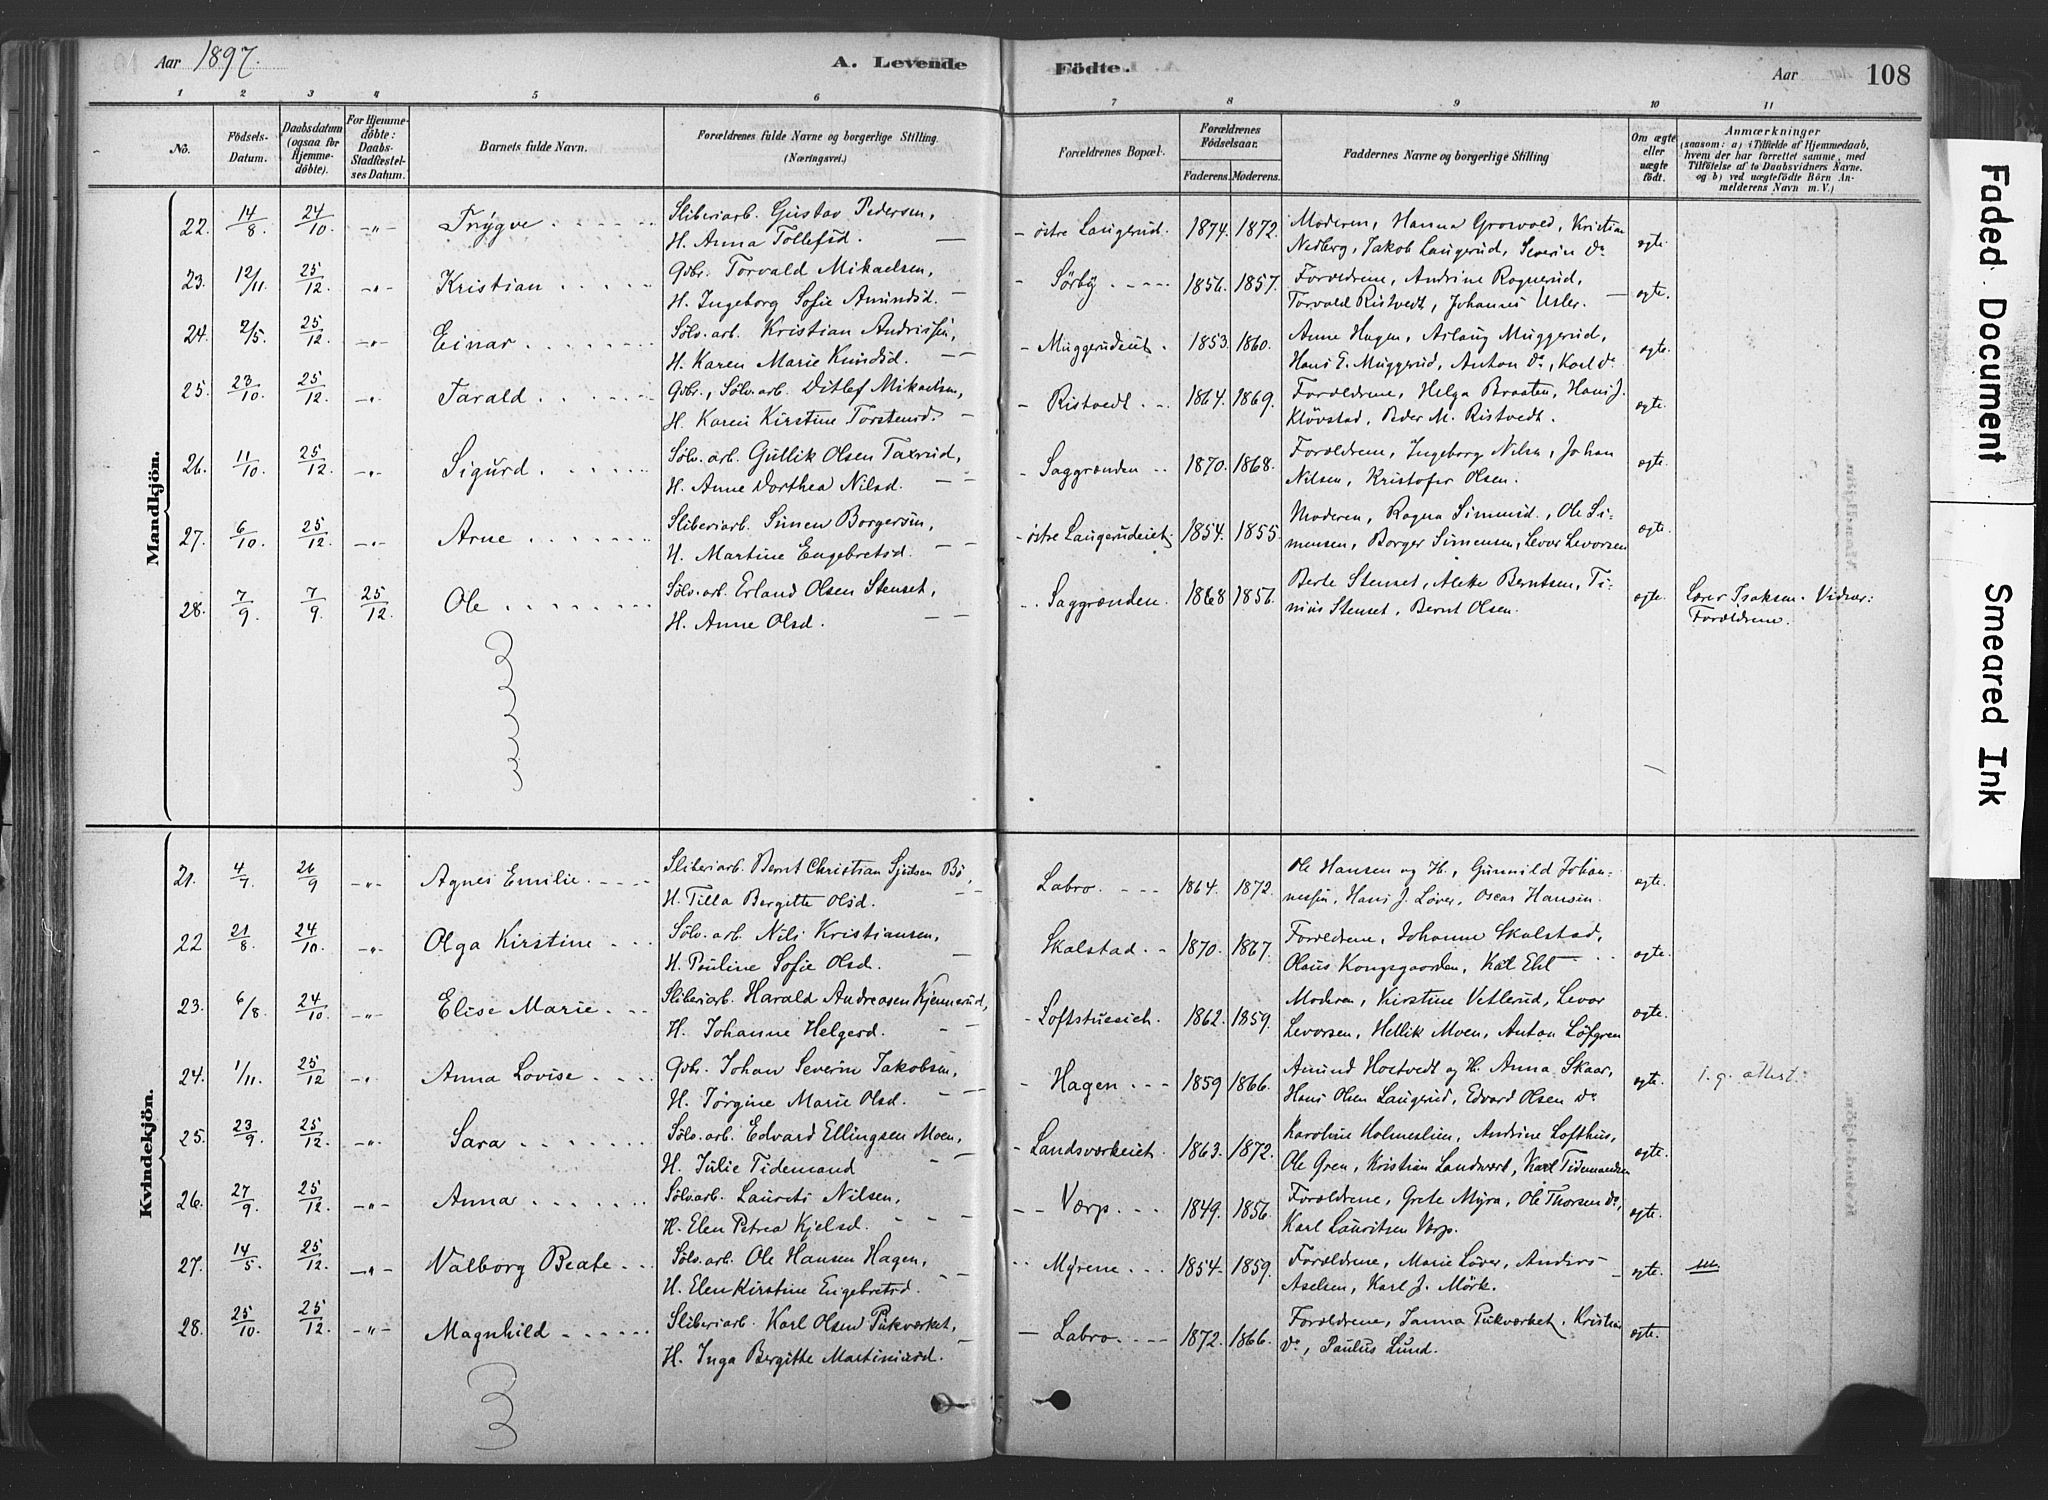 Aar 1897. A. Levende Födte. Aar 108
1 2 3 4 5 6 7 8 9 10 11
No. Födsels-Datum. Daabsdatum (ogsaa for Hjemme-döbte). For Hjemme-döbte: Daabs-Stadfæstel-ses Datum. Barnets fulde Navn. Forældrenes fulde Navne og borgerlige Stilling. (Næringsvei.) Forældrenes Bopæl. Forældrenes Födselsaar. Faderens. Moderens. Faddernes Navne og borgerlige Stilling Om ægte eller uægte födt. Anmærkninger (saasom: a) i Tilfælde af Hjemmedaab, hvem der har forrettet samme, med Tilföielse af to Daabsvidners Navne, og b) ved uægtefödte Börn An-melderens Navn m. V.)
Mandkjön.
22. 14/8. 24/10. -"- Trygve Sliberiarb. Gustav Pedersen, - östre Laugerud. 1874. 1872. Moderen, Hanna Grosvold, Kristian ægte.
H. Anna Tollefsd. Nedberg, Jakob Laugerud, Severin do
23. 12/11. 25/12. -"- Kristian Gbr. Torvald Mikaelsen, - Sörby 1856. 1857. Forældrene, Andrine Rognerud, ægte.
H. Ingeborg Sofie Amundsd. Torvald Ristvedt, Johannes Usler.
24. 2/5. 25/12. -"- Einar Sölv. arb. Kristian Andrissen, - Muggerudeiet. 1853. 1860. Anne Hagen, Aslaug Muggerud, ægte.
H. Karen Marie Knudsd. Hans E. Muggerud, Anton do, Karl do
25. 23/10. 25/12. -"- Tarald Gbr., Sölv. arb. Ditlef Mikaelsen, - Ristvedt 1864. 1869. Forældrene, Helga Braaten, Hans J. ægte.
H. Karen Kirstine Torstensd. Klövstad, Peder M. Ristvedt.
26. 11/10. 25/12. -"- Sigurd Sölv. arb. Gullik Olsen Taxrud, - Saggrenden 1870. 1868. Forældrene, Ingeborg Nilsen, Johan ægte.
H. Anne Dorthea Nilsd. Nilsen, Kristofer Olsen.
27. 6/10. 25/12. -"- Arne Sliberiarb. Simen Borgersen, - östre Laugerudeiet. 1854. 1855. Moderen, Ragna Simensd., Ole Si- ægte.
H. Martine Engebretsd. mensen, Borger Simensen, Levor Levorsen
28. 7/9. 7/9. 25/12. Ole Sölv. arb. Erland Olsen Stenset, Saggrenden. 1868 1856. Berte Stenset, Aleke Berntsen, Ti- ægte. Lærer Isaksen. Vidner:
H. Anne Olsd. nius Stenset, Bernt Olsen. Forældrene.
Kvindekjön.
21. 4/7. 26/9 -"- Agnes Emilie Sliberiarb. Bernt Christian Sjulsen Bö, Labro 1864. 1872. Ole Hansen og H., Gunnild Johan- ægte.
H. Tilla Bergitte Olsd. nessen, Hans J. Löver, Oscar Hansen.
22 21/8. 24/10. -"- Olga Kirstine Sölv. arb. Nils Kristiansen, Skalstad 1870. 1867. Forældrene, Johanne Skalstad, ægte.
H. Pauline Sofie Olsd. Olaus Kongsgaarden,
23. 6/8 24/10. -"- Elise Marie Sliberiarb. Harald Andreasen Kjennerud, 1862. 1859. Moderen, Kirstine Vetlerud, Levor ægte.
H. Johanne Helgesd. Levorsen, Hellik Moen, Anton Löfgren
24. 1/11. 25/12 -"- Anna Lovise Gbr. Johan Severin Jakobsen, - Hagen 1859 1866. Amund Hostvedt og H. Anna Skaar, ægte. attest.
H. Jörgine Marie Olsd. Hans Olsen Laugerud, Edvard Olsen do
25. 23/9. 25/12. -"- Sara Sölv. arb. Edvard Ellingsen Moen, - Landsverkeiet. 1863. 1872. Karoline Holmeslien, Andrine Lofthus, ægte.
H. Julie Tidemand Ole Gren, Kristian Landverk, Karl Tidemandsen
26. 27/9. 25/12. -"- Anna Sölv. arb. Laurits Nilsen, Værp. 1849. 1856. Forældrene, Grete Myra, Ole Thorsen do, ægte.
H. Elen Petrea Kjelsd. Karl Lauritsen Værp.
27. 14/5. 25/12. -"- Valborg Beate Sölv. arb. Ole Hansen Hagen, Myrene 1854. 1859. Forældrene, Marie Löver, Anders ægte.
H. Elen Kirstine Engebretsd. Axelsen, Karl J. Mörk.
28. 25/10. 25/12. -"- Magnhild Sliberiarb. Karl Olsen Pukverket, - Labro 1872. 1866. Forældrene, Janna Pukverket, Kristian ægte.
H. Inga Bergitte Martiniusd. do, Paulus Lund.
Faded Document
Smeared Ink